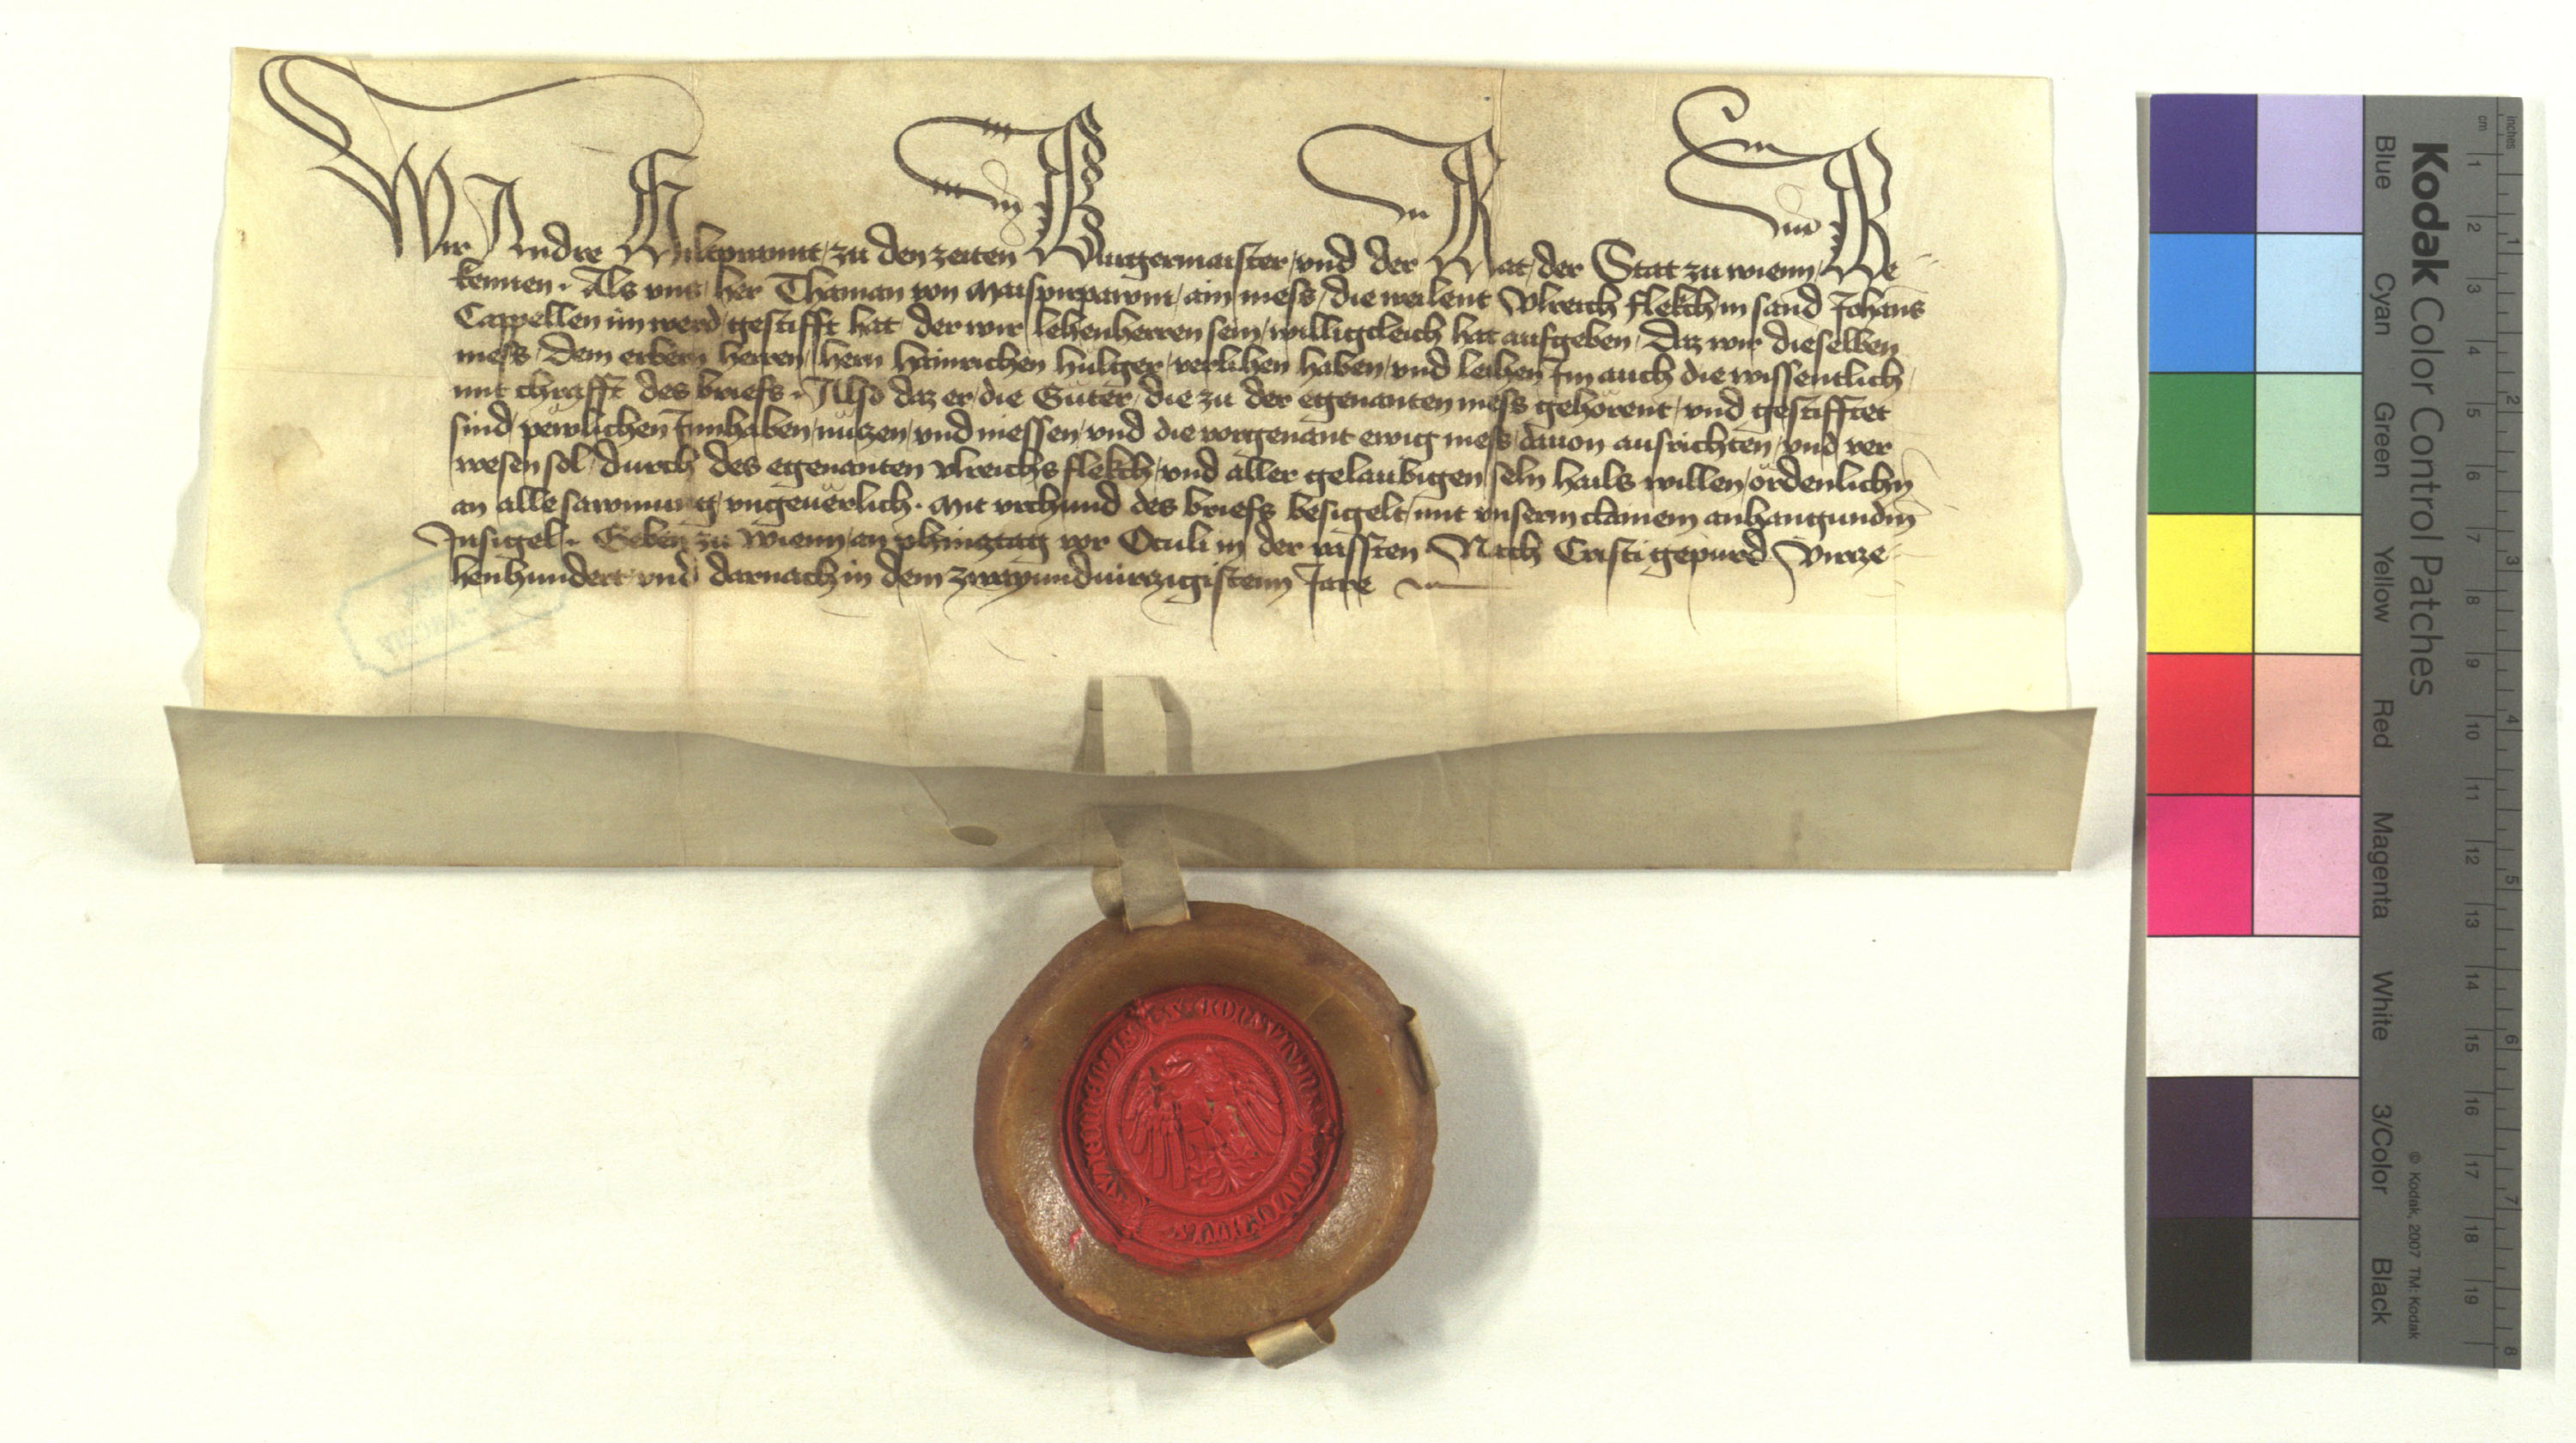 Wir Andre Hiltprannt, zu den zeiten Burgermaister, vnd der Rat, der Stat zu wienn, Be
kennen. Als vns, her Thaman von Maispirpawm, ain mess, die weilent Vlreich flekch, in sand Johans
Cappellen im werd, gestifft hat, der wir lehenherren sein, willigcleich hat aufgeben, Daz wir dieselben
mess, Dem erbern herren, hern Hainrichen Hultzer, verlihen haben, vnd leihen Im auch die wissentlich,
mit chrafft des briefs. Also daz er, die Güter, die zu der egenanten mess gehörent, vnd gestifftet
sind, pewlichen Innhaben, nützen, vnd niessen, vnd die vorgenant ewig mess, dauon ausrichten, vnd ver
wesen sol, durch des egenanten Vlreichs flekch, vnd aller gelaubigen seln hails willen, ordenlichn
an alle sawmung, vngeuerlich. Mit vrchund des briefs, besigelt, mit vnserm clainem anhangundm
Insigel. Geben zu Wienn, an phincztag vor Oculi in der vassten. Nach Cristi gepurd Virze-
henhundert vnd darnach in dem zwayundvirzigistenn Jare
Kodak Color Control Patches
Blue Cyan Green Yellow Red Magenta White 3/Color Black
© Kodak, 2007 TM: Kodak
inches 1 2 3 4 5 6 7 8
cm 1 2 3 4 5 6 7 8 9 10 11 12 13 14 15 16 17 18 19